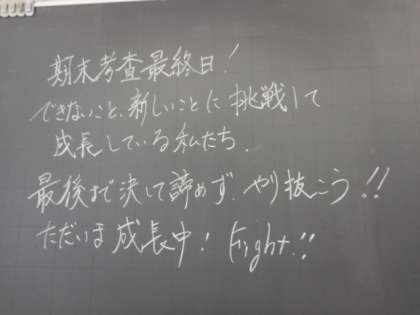 期末考査最終日!
できないこと、新しいことに挑戦して
成長している私たち.
最後まで決して諦めず.やり抜こう!!
ただいま成長中! Fight!!